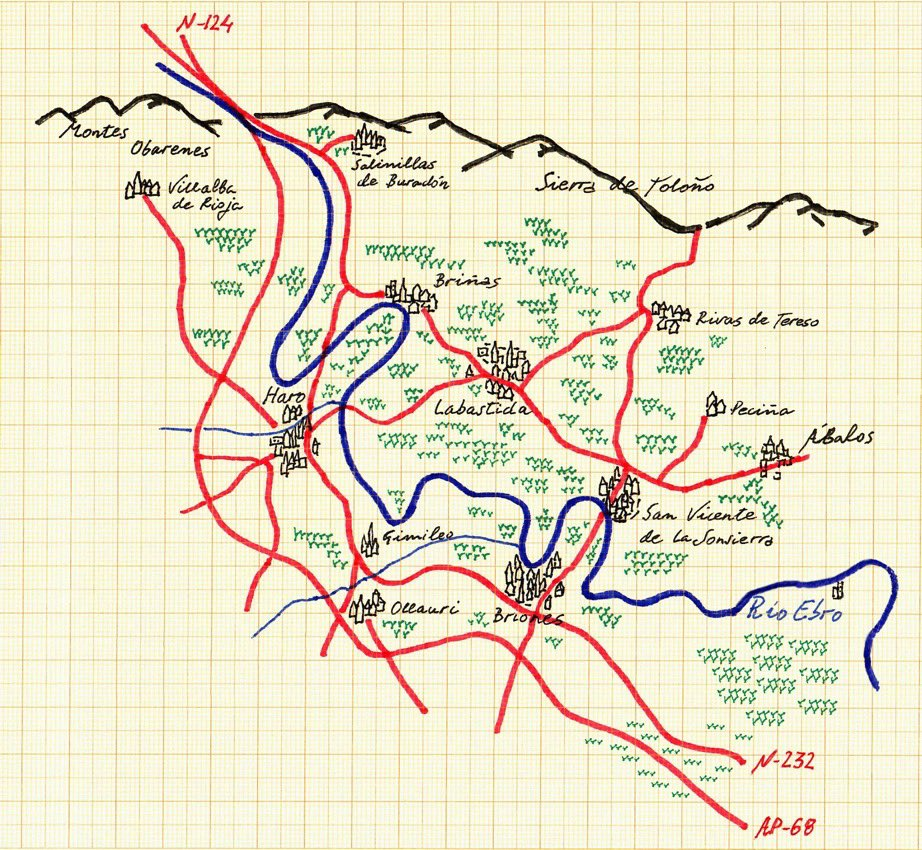 N-124
Montes
Obarenes
Salinillas
de Buradón
Villalba
de Rioja
Sierra de Toloño
Briñas
Rivas de Tereso
Haro
Labastida
Peciña
ÁBalos
San Vicente
de La Sonsierra
Gimileo
Ollauri
Briones
Río Ebro
N-232
AP-68